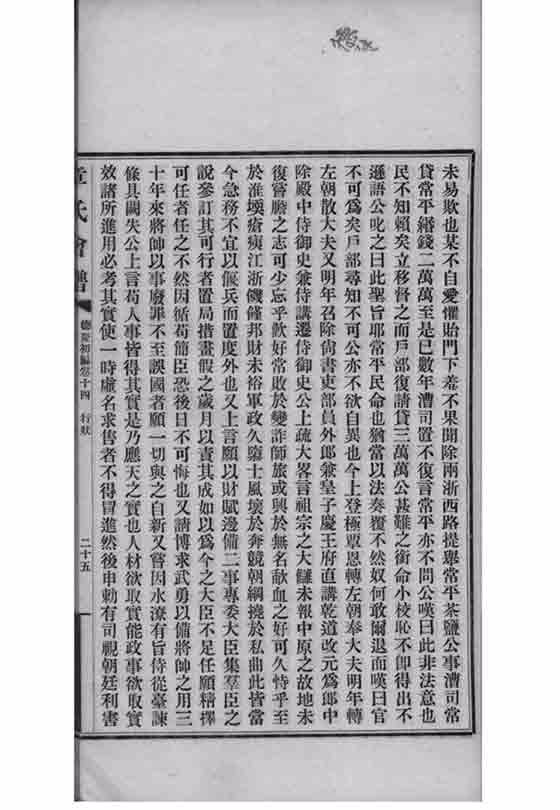 未易欺也某不自愛懼貽門下羞不果開除兩浙西路提舉常平茶鹽公事漕司常
貸常平緡錢二萬萬至是已數年漕司置不復言常平亦不問公嘆曰此非法意也
民不知賴矣立移督之而戶部復請貸三萬萬公甚難之銜命小校恥不卽得出不
遜語公叱之曰此聖旨耶常平民命也猶當以法奏覆不然奴何敢爾退而嘆曰官
不可爲矣戶部尋知不可公亦不欲自異也今上登極覃恩轉左朝奉大夫明年轉
左朝散大夫又明年召除尙書吏部員外郎兼皇子慶王府直講乾道改元爲郎中
除殿中侍御史兼侍講遷侍御史公上疏大畧言祖宗之大讎未報中原之故地未
復嘗膽之志可少忘乎歃好常敗於變詐師旅或興於無名歃血之好可久恃乎至
於淮壖瘡痍江浙饑饉邦財未裕軍政久隳士風壞於奔競朝綱撓於私曲此皆當
今急務不宜以偃兵而置度外也又上言願以財賦邊備二事專委大臣集羣臣之
說參訂其可行者置局措畫假之歲月以責其成如以爲今之大臣不足任願精擇
可任者任之不然因循苟簡臣恐後日不可悔也又請博求武勇以備將帥之用三
十年來將帥以事廢罪不至誤國者願一切與之自新又嘗因水潦有旨侍從臺諫
條具闕失公上言苟人事皆得其實是乃應天之實也人材欲取實能政事欲取實
效諸所進用必考其實使一時虛名求售者不得冒進然後申勅有司視朝廷利害
章氏會譜
德慶初編卷十四　行狀
二十五